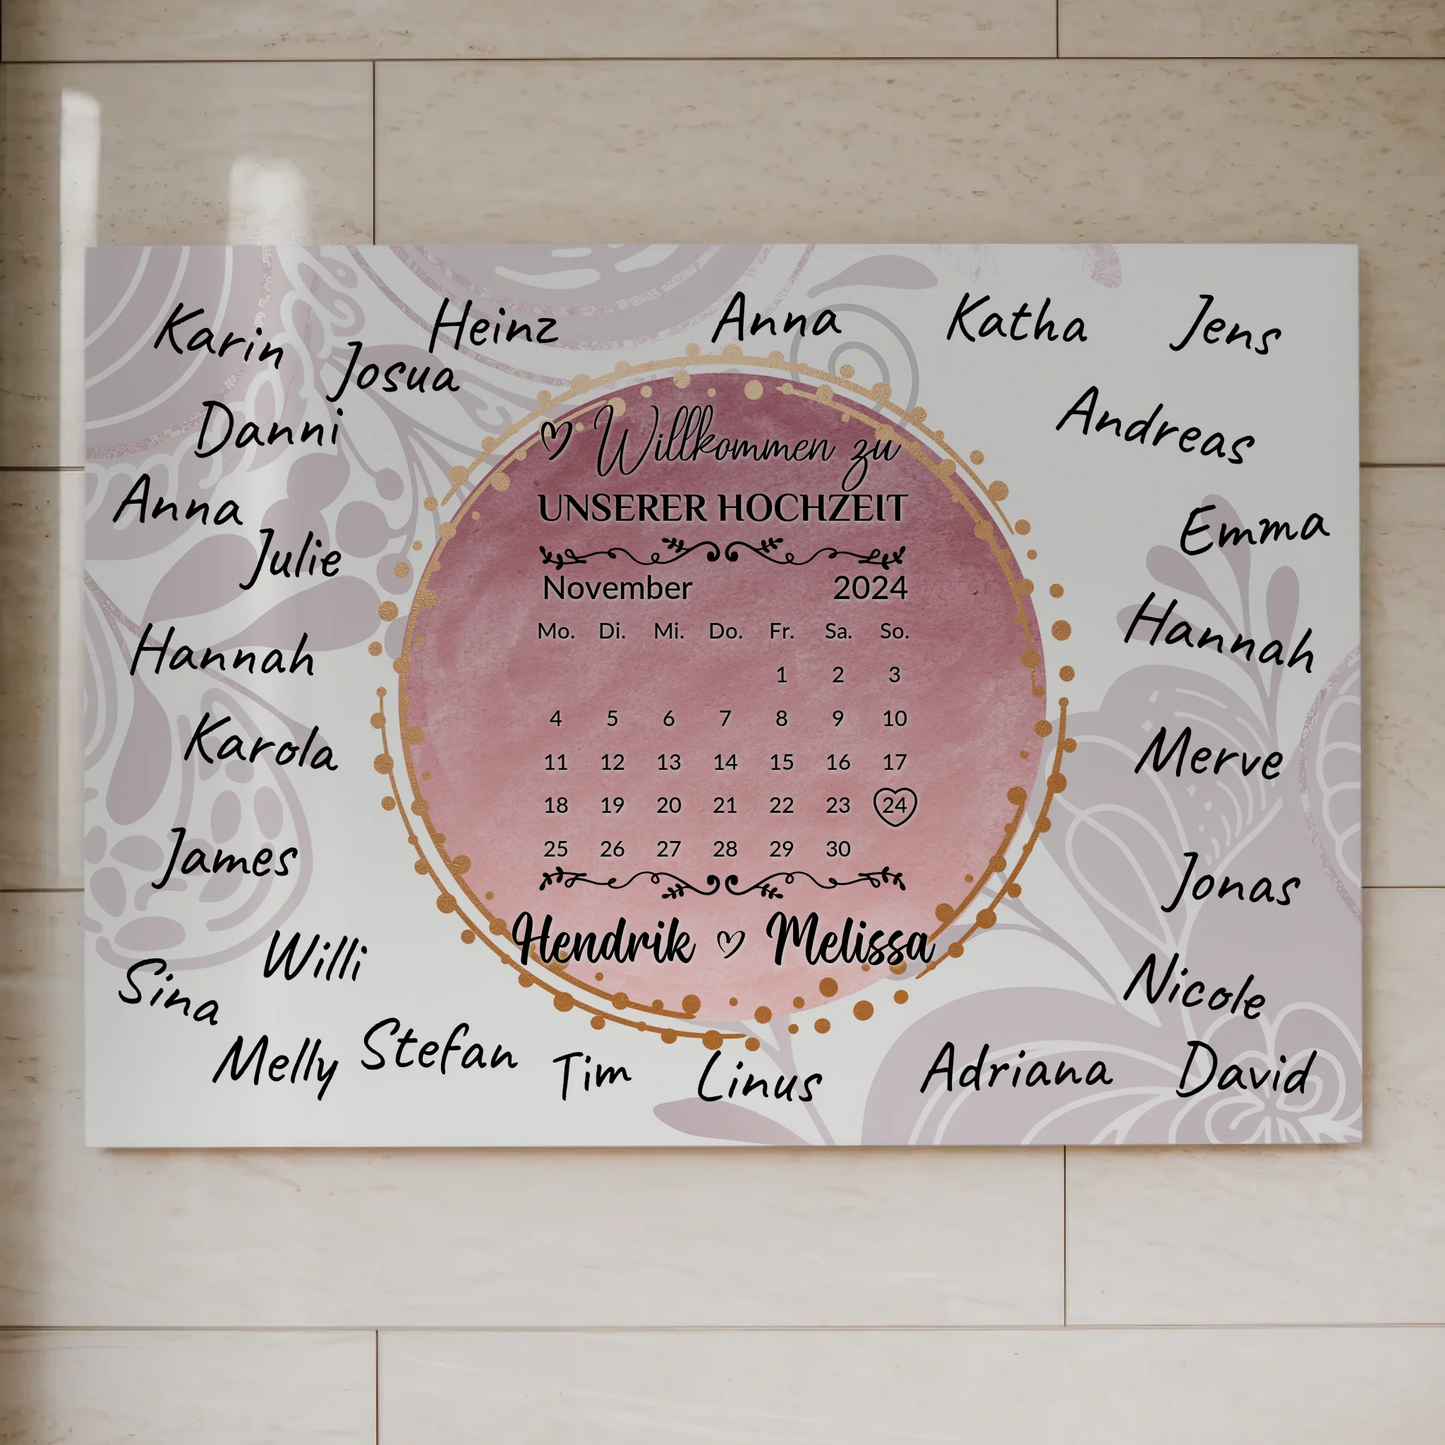 Karin
Heinz
Anna
Katha
Jens
Josua
Danni
Andreas
Anna
Julie
Emma
Hannah
Hannah
Karola
Merve
James
Jonas
Willi
Sina
Nicole
Melly
Stefan
Tim
Linus
Adriana
David
Willkommen zu
UNSERER HOCHZEIT
November 2024
Mo. Di. Mi. Do. Fr. Sa. So.
1 2 3
4 5 6 7 8 9 10
11 12 13 14 15 16 17
18 19 20 21 22 23 24
25 26 27 28 29 30
Hendrik ♡ Melissa